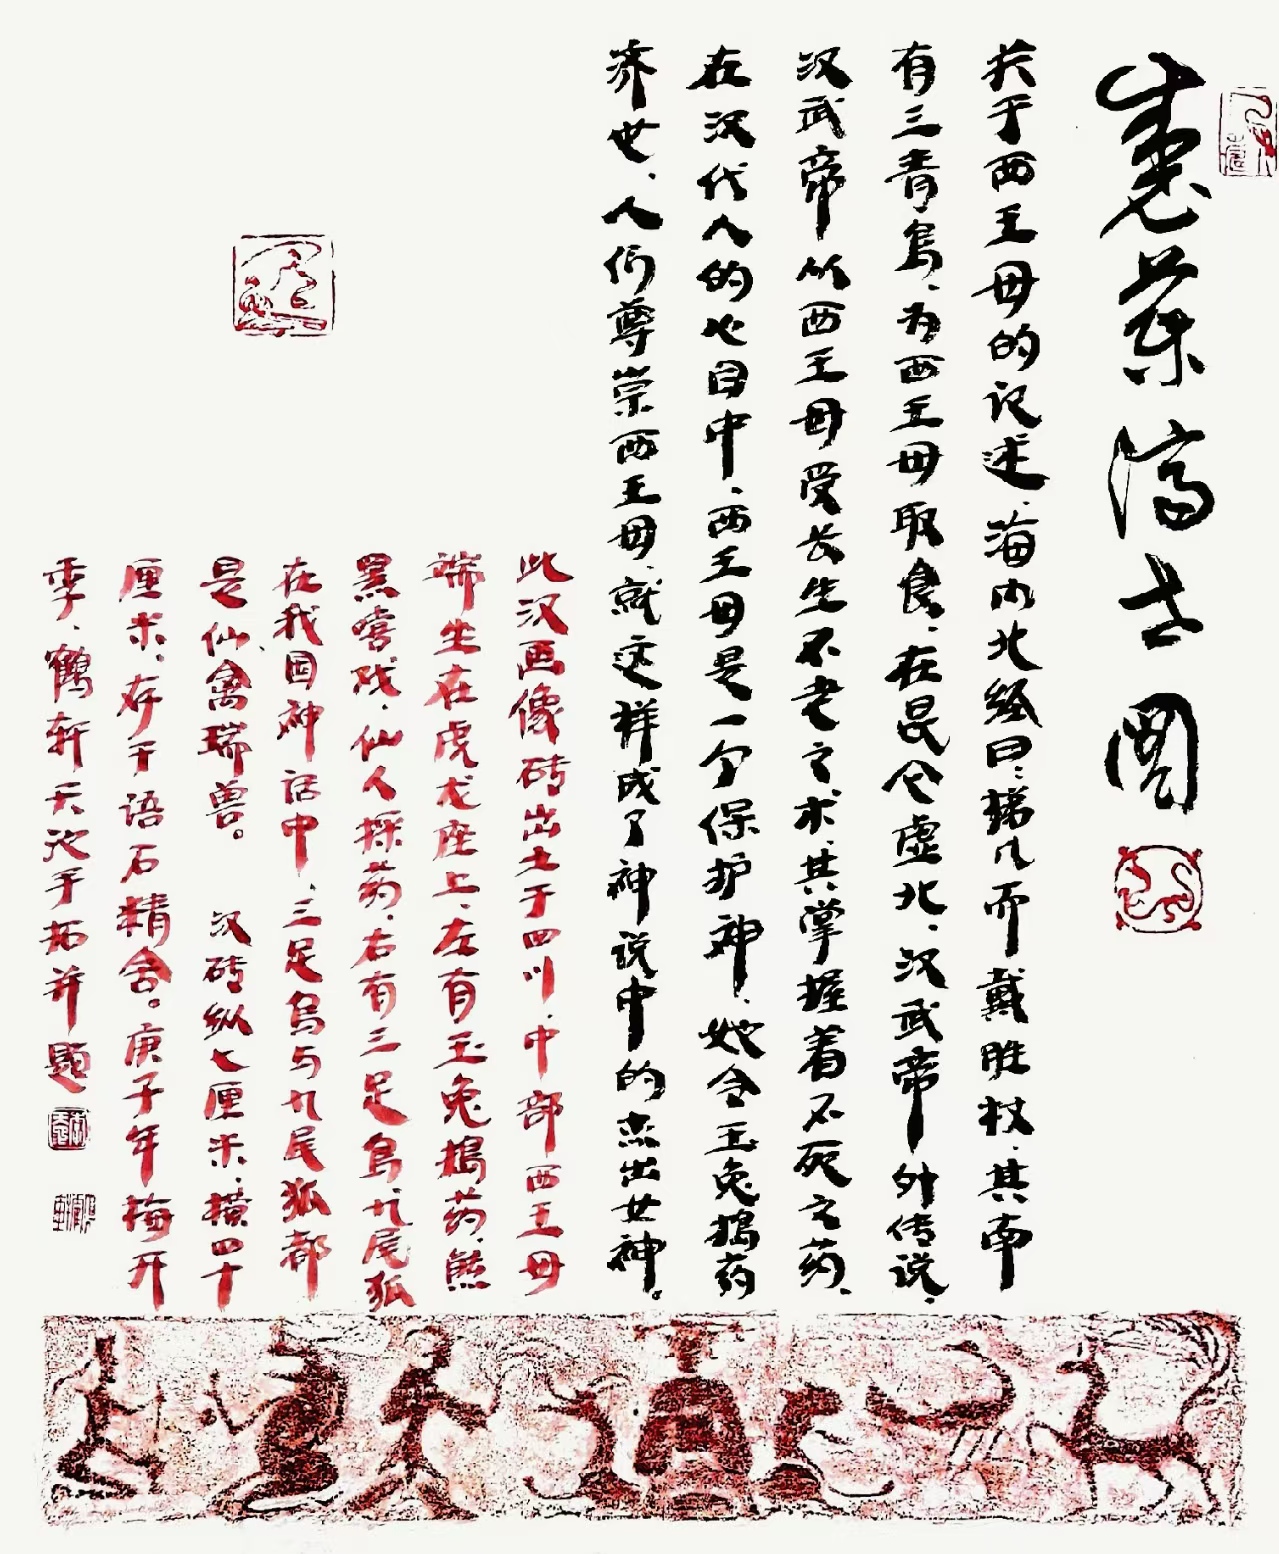 製藥濟世圖
关于西王母的记述、海内北经曰：梯几而戴胜杖、其南
有三青鸟、为西王母取食、在昆仑虚北、汉武帝外传说、
汉武帝从西王母受长生不老之术、其掌握着不死之药、
在汉代人的心目中、西王母是一个保护神、她令玉兔捣药
济世、人们尊崇西王母、就这样成了神说中的杰出女神。
此汉画像砖出土于四川、中部西王母
端坐在虎龙座上、左有玉兔捣药、熊
罴嘻戏、仙人採药、右有三足乌、九尾狐
在我国神话中、三足乌与九尾狐都
是仙禽、瑞兽。 汉砖纵七厘米、横四十
厘米、存于语石精舍。庚子年梅开
季、鹤轩天池手拓并题